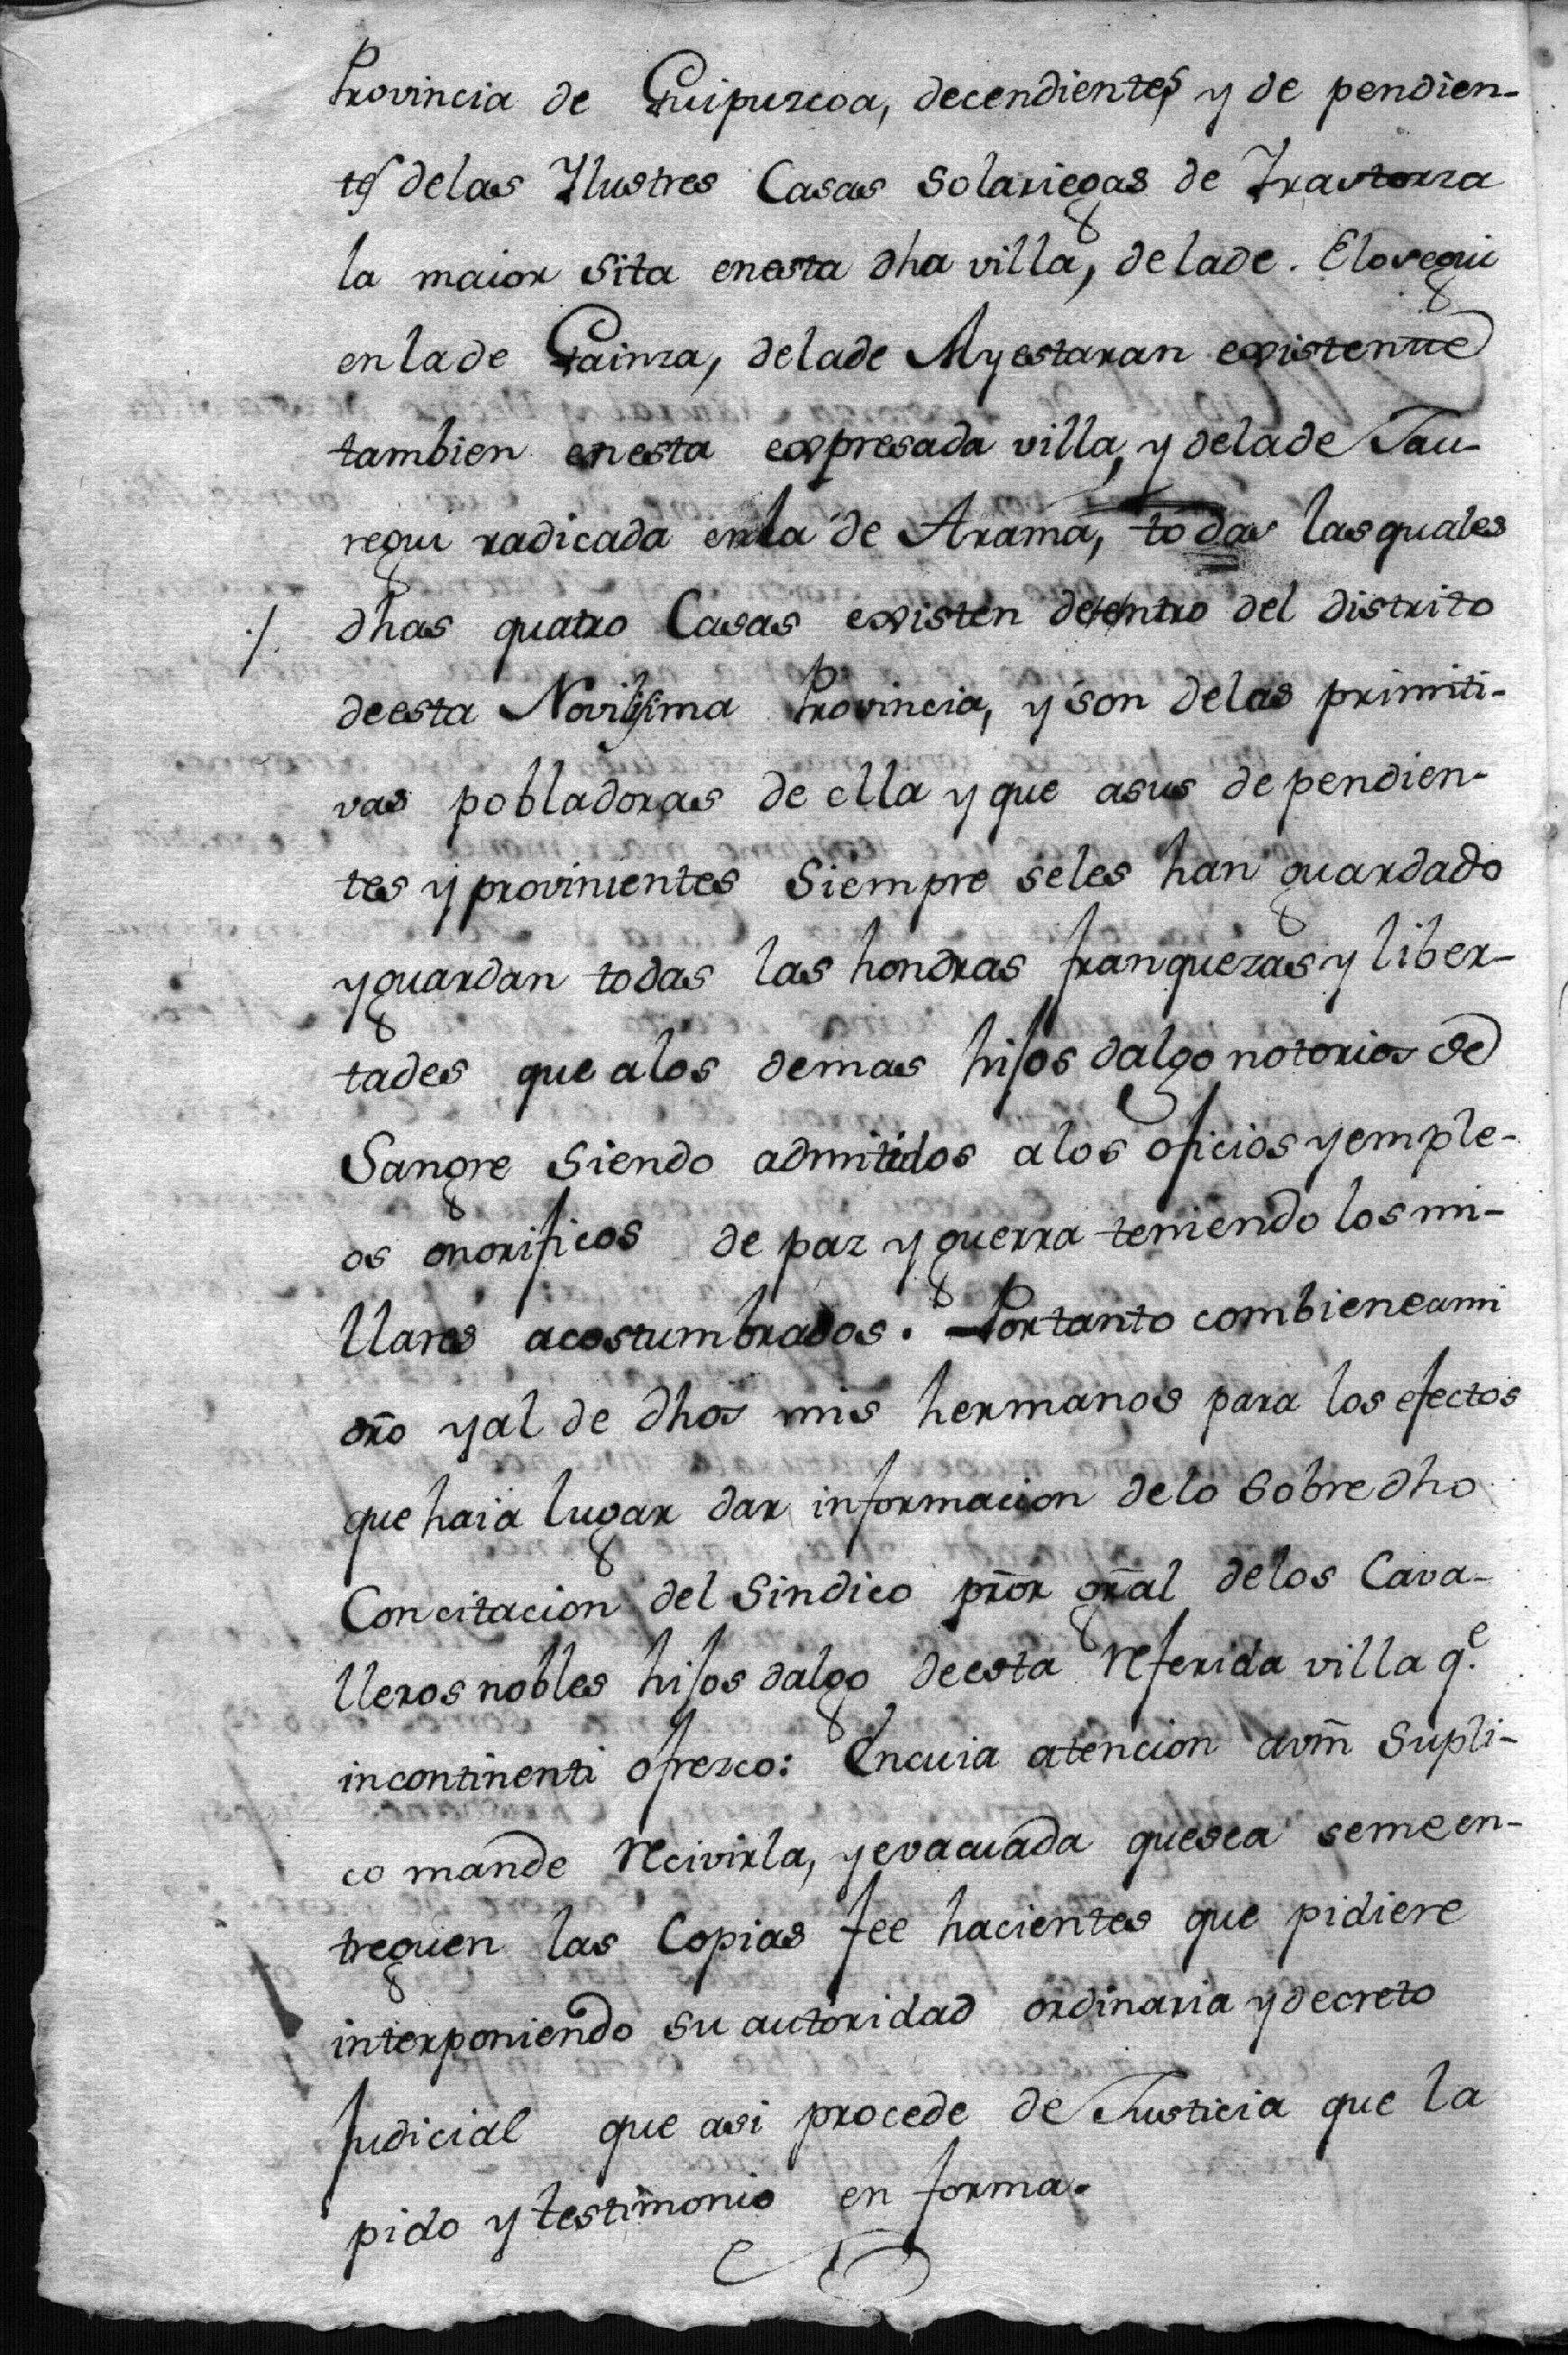 Provincia de Guipuzcoa, decendientes y de pendien-
tes delas Ylustres Casas Solariegas de Yrastorza
la maior sita enesta dha villa, delade. Elosegui
enlade Gainza, delade Ayestaran existente
tambien enesta expresada villa, y delade Jau-
regui radicada enla de Arama, todas lasquales
./. dhas quatro Casas existen dedentro del distrito
deesta Novilisima Provincia, y son delas primiti-
vas pobladoras de ella y que asus de pendien-
tes y provinientes Siempre seles han guardado
yguardan todas las hondras franquezas y liber-
tades que alos demas hijos dalgo notorios de
Sangre Siendo admitidos alos oficios yemple-
os onorificos de paz y guerra teniendo losmi-
llares acostumbrados. Portanto combieneami
dr̃o yal de dhos mis hermanos para los efectos
que haia lugar dar informacion delo Sobredho
Concitacion del Sindico pr̃or gr̃al delos Cava-
lleros nobles hijos dalgo deesta referida villa q.e
incontinenti ofrezco: Encuia atencion avm̃ Supli-
co mande recivirla, yevacuada quesea semeen-
treguen las Copias fee hacientes que pidiere
interponiendo su autoridad ordinaria ydecreto
Judicial que asi procede de Justicia que la
pido y testimonio en forma.